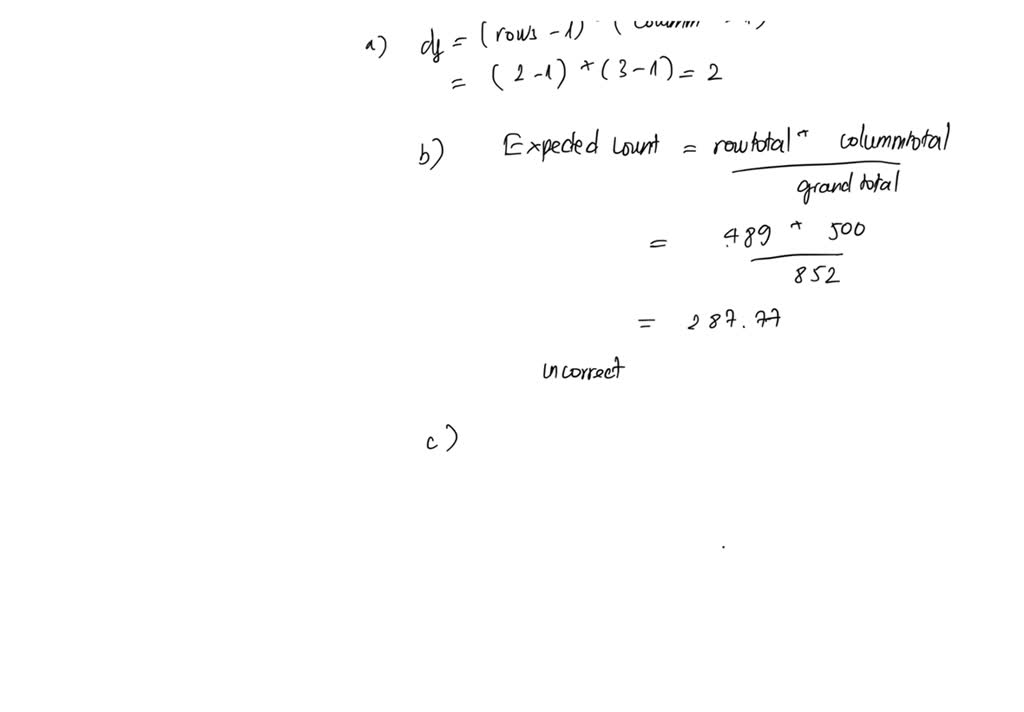 a) df = (rows - 1) * (column - 1)
= (2-1) * (3-1) = 2
b) Expected count = row total * column total
grand total
= 489 * 500
852
= 287.77
incorrect
c)